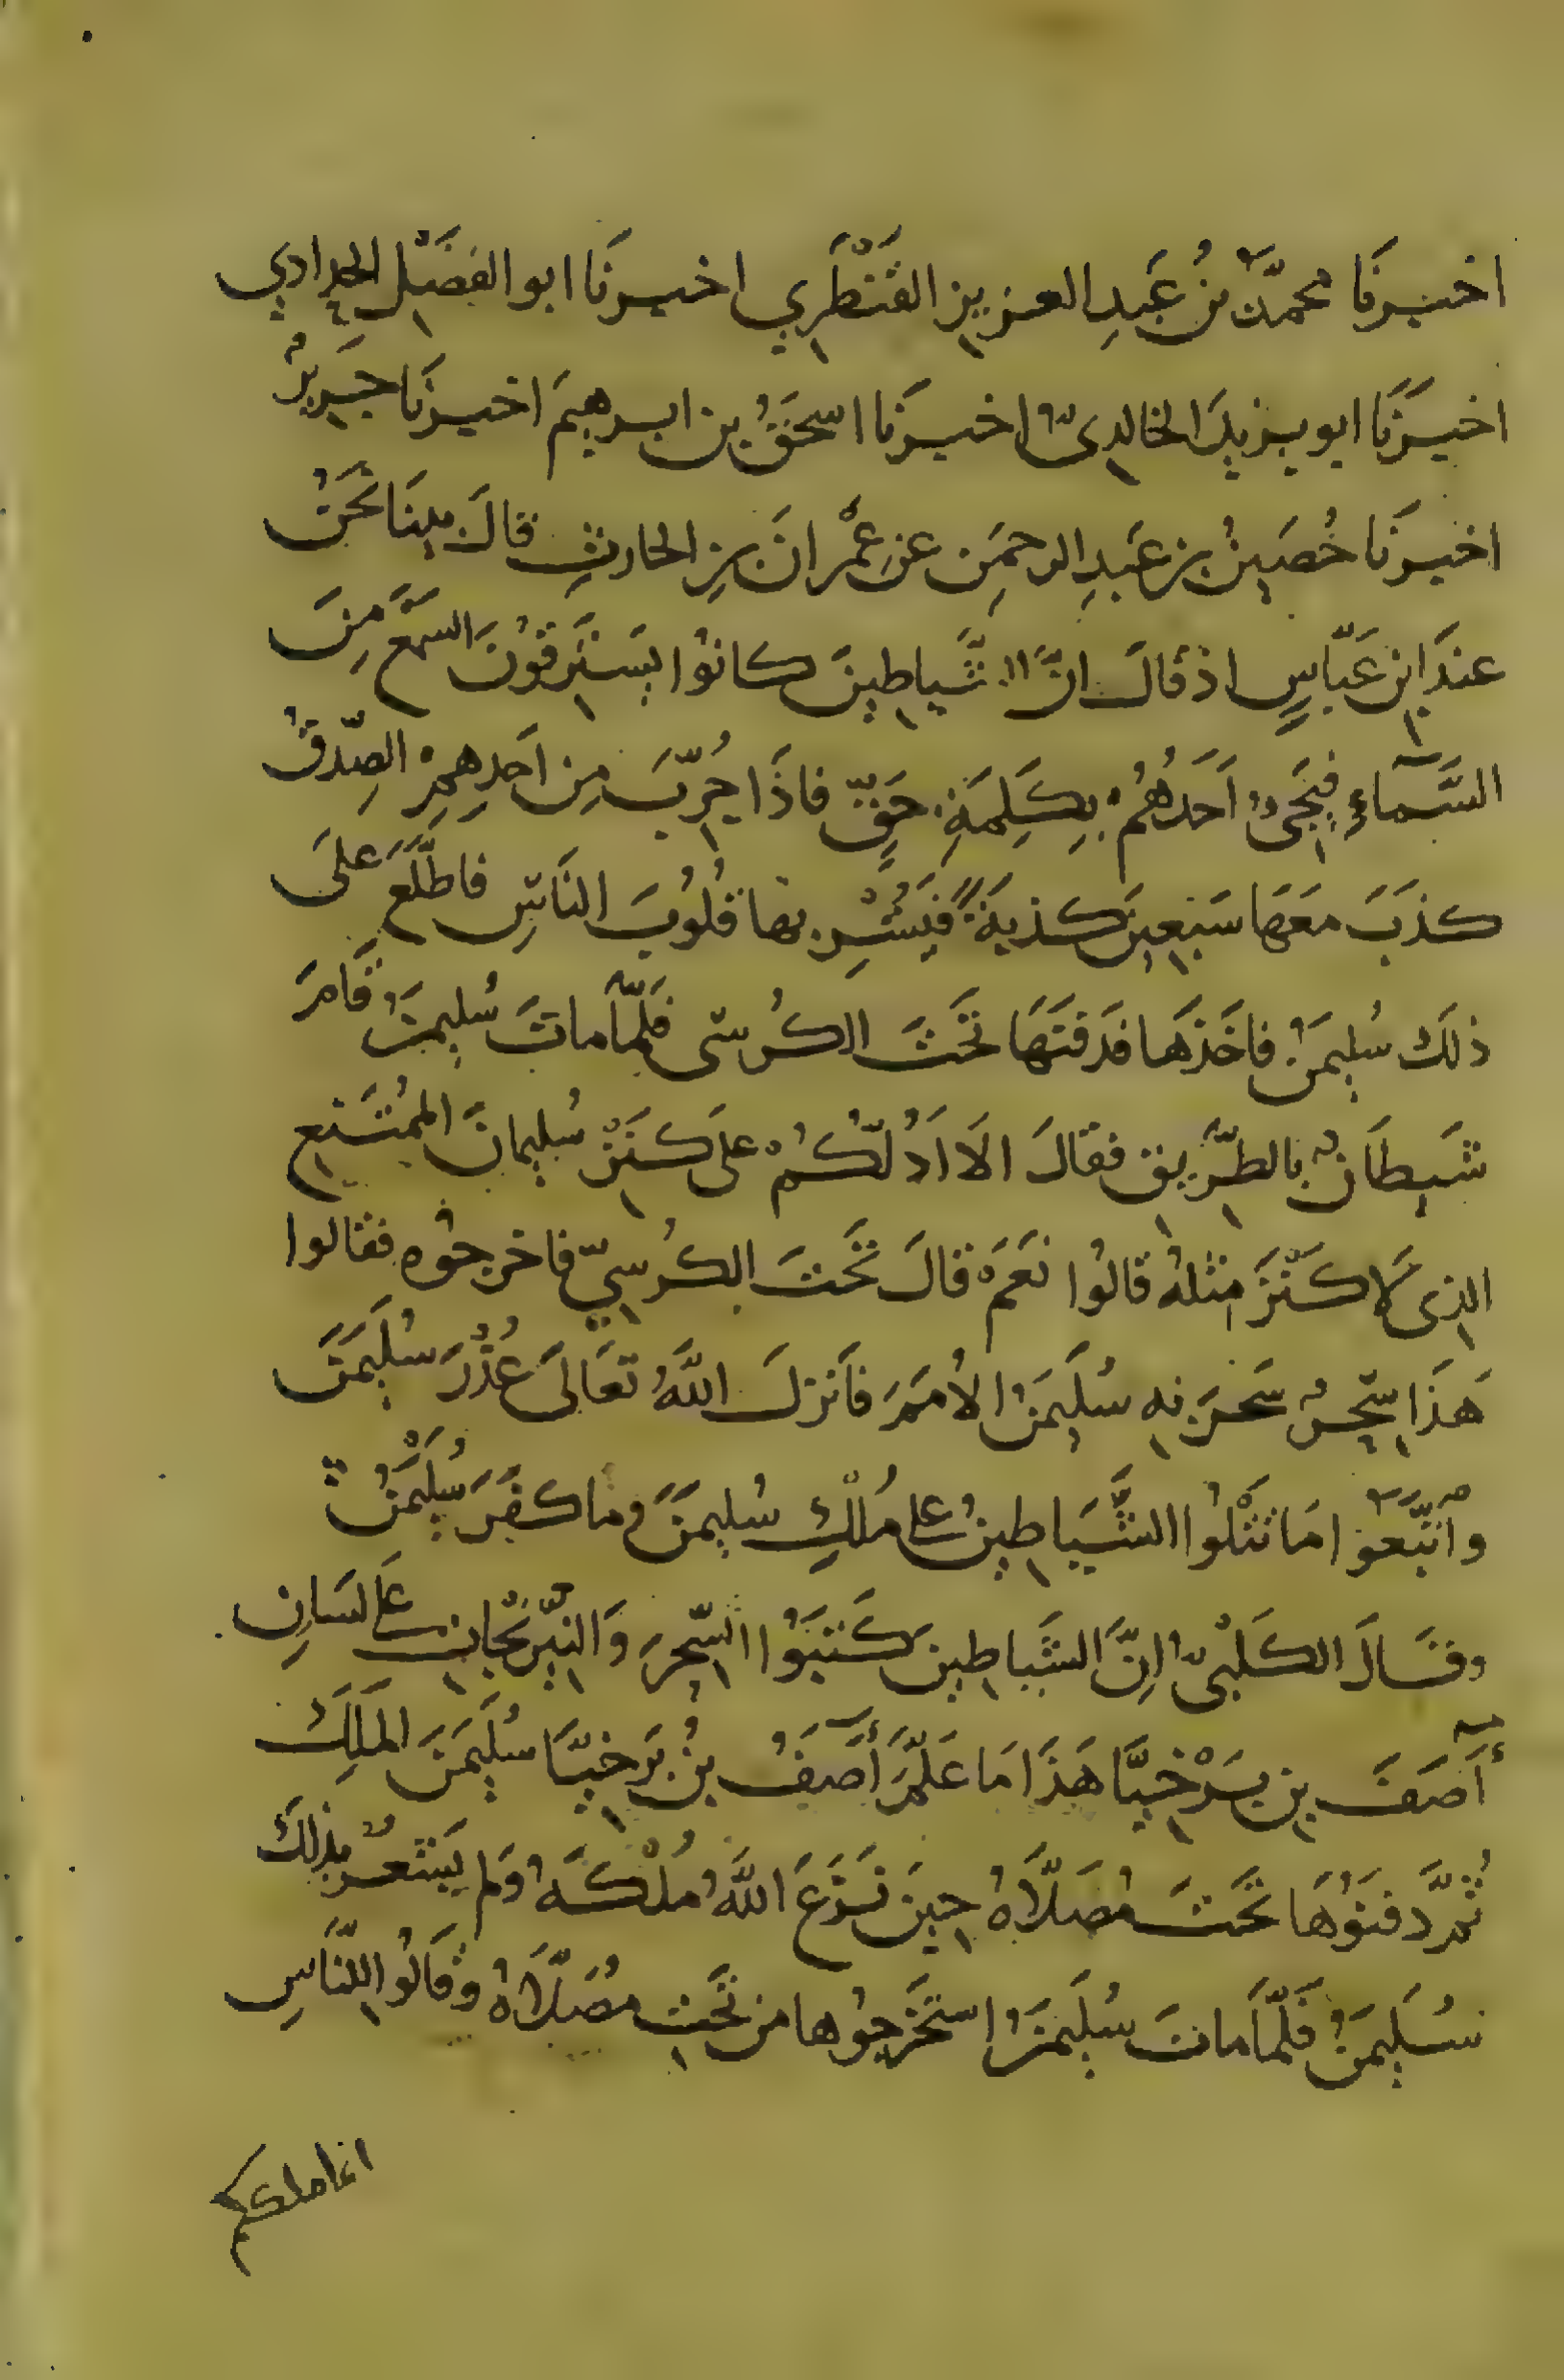 اخبرنا محمّد بنُ عَبدِ العزيزِ القَنْطَرِي اخبرنَا ابو الفَضْل الحدادي
اخبرَنَا ابو يزيدَ الخالديّ اخبرَنا اسحَقُ بن ابرهيمَ اخبرنَا جَرِيرٌ
اخبرنَا حُصَينُ بن عَبدِ الرحمَنِ عنِ عِمْرانَ بنِ الحارثِ قالَ بينَا نَحْنُ
عندَ ابن عَبّاسٍ اذ قالَ انّ الشَّياطينَ كانوُا يَسْتَرِقُونَ السَّمعَ مِنَ
السَّمآءِ فيَجىُ اَحَدهُمُ بِكَلِمَةِ حَقٍّ فاذَا جُرِّبَ مِن اَحَدِهِمِ الصِّدقُ
كذَبَ معَهَا سَبعِينَ كذبةً فيَشْرِبُها قُلُوبَ النَاسِ فاطَّلَعَ علَى
ذلكَ سُليمَنُ فاخَذَها فدَفنَهَا تَحْتَ الكُرسّى فلمّا ماتَ سُليمنُ قَامَ
شَيطَانٌ بالطّريق فقالَ الَا اَدُلّكُمُ على كَنزِ سُليمانَ الممُتَنع
الذِى لَا كَنْزَ مثلهُ قالوُا نَعَمْ قالَ تَحتَ الكُرسيّ فاخرجوُه فقالوا
هَذَا سِحْرٌ سَحَرَ بِهِ سُلَيمَنُ الأُمَمَ فاَنزلَ اللَّهُ تعَالَى عُذْرَ سُلَيمَنَ
واتّبعوُا مَا تَتْلوُا الشَّيَاطِينُ على مُلْكِ سُليمَنَ وما كفَرَ سُلَيْمَنُ
وقالَ الكَلْبىّ اِنَّ الشَّياطِينَ كَتبَوُا السِّحرَ وَالنِّيرَنْجاتِ على لسَانِ
آصَفَ بنِ بَرْخِيَّا هَذَا مَا عَلَّمَ آصَفُ بنُ بَرخيّا سُلَيمَنَ المَلِكَ
ثُمَّ دفَنَوُهَا تَحْتَ مُصَلَّاهُ حِينَ نَزَعَ اللَّهُ مُلْكَهُ ولَم يَشْعُرْ بذلكَ
سُلَيمَنُ فلمّا ماتَ سُلَيمَنُ استَخْرَجوُها من تَحتِ مصُلّاهُ وقَالُوا للنَّاسِ
انما ملككم